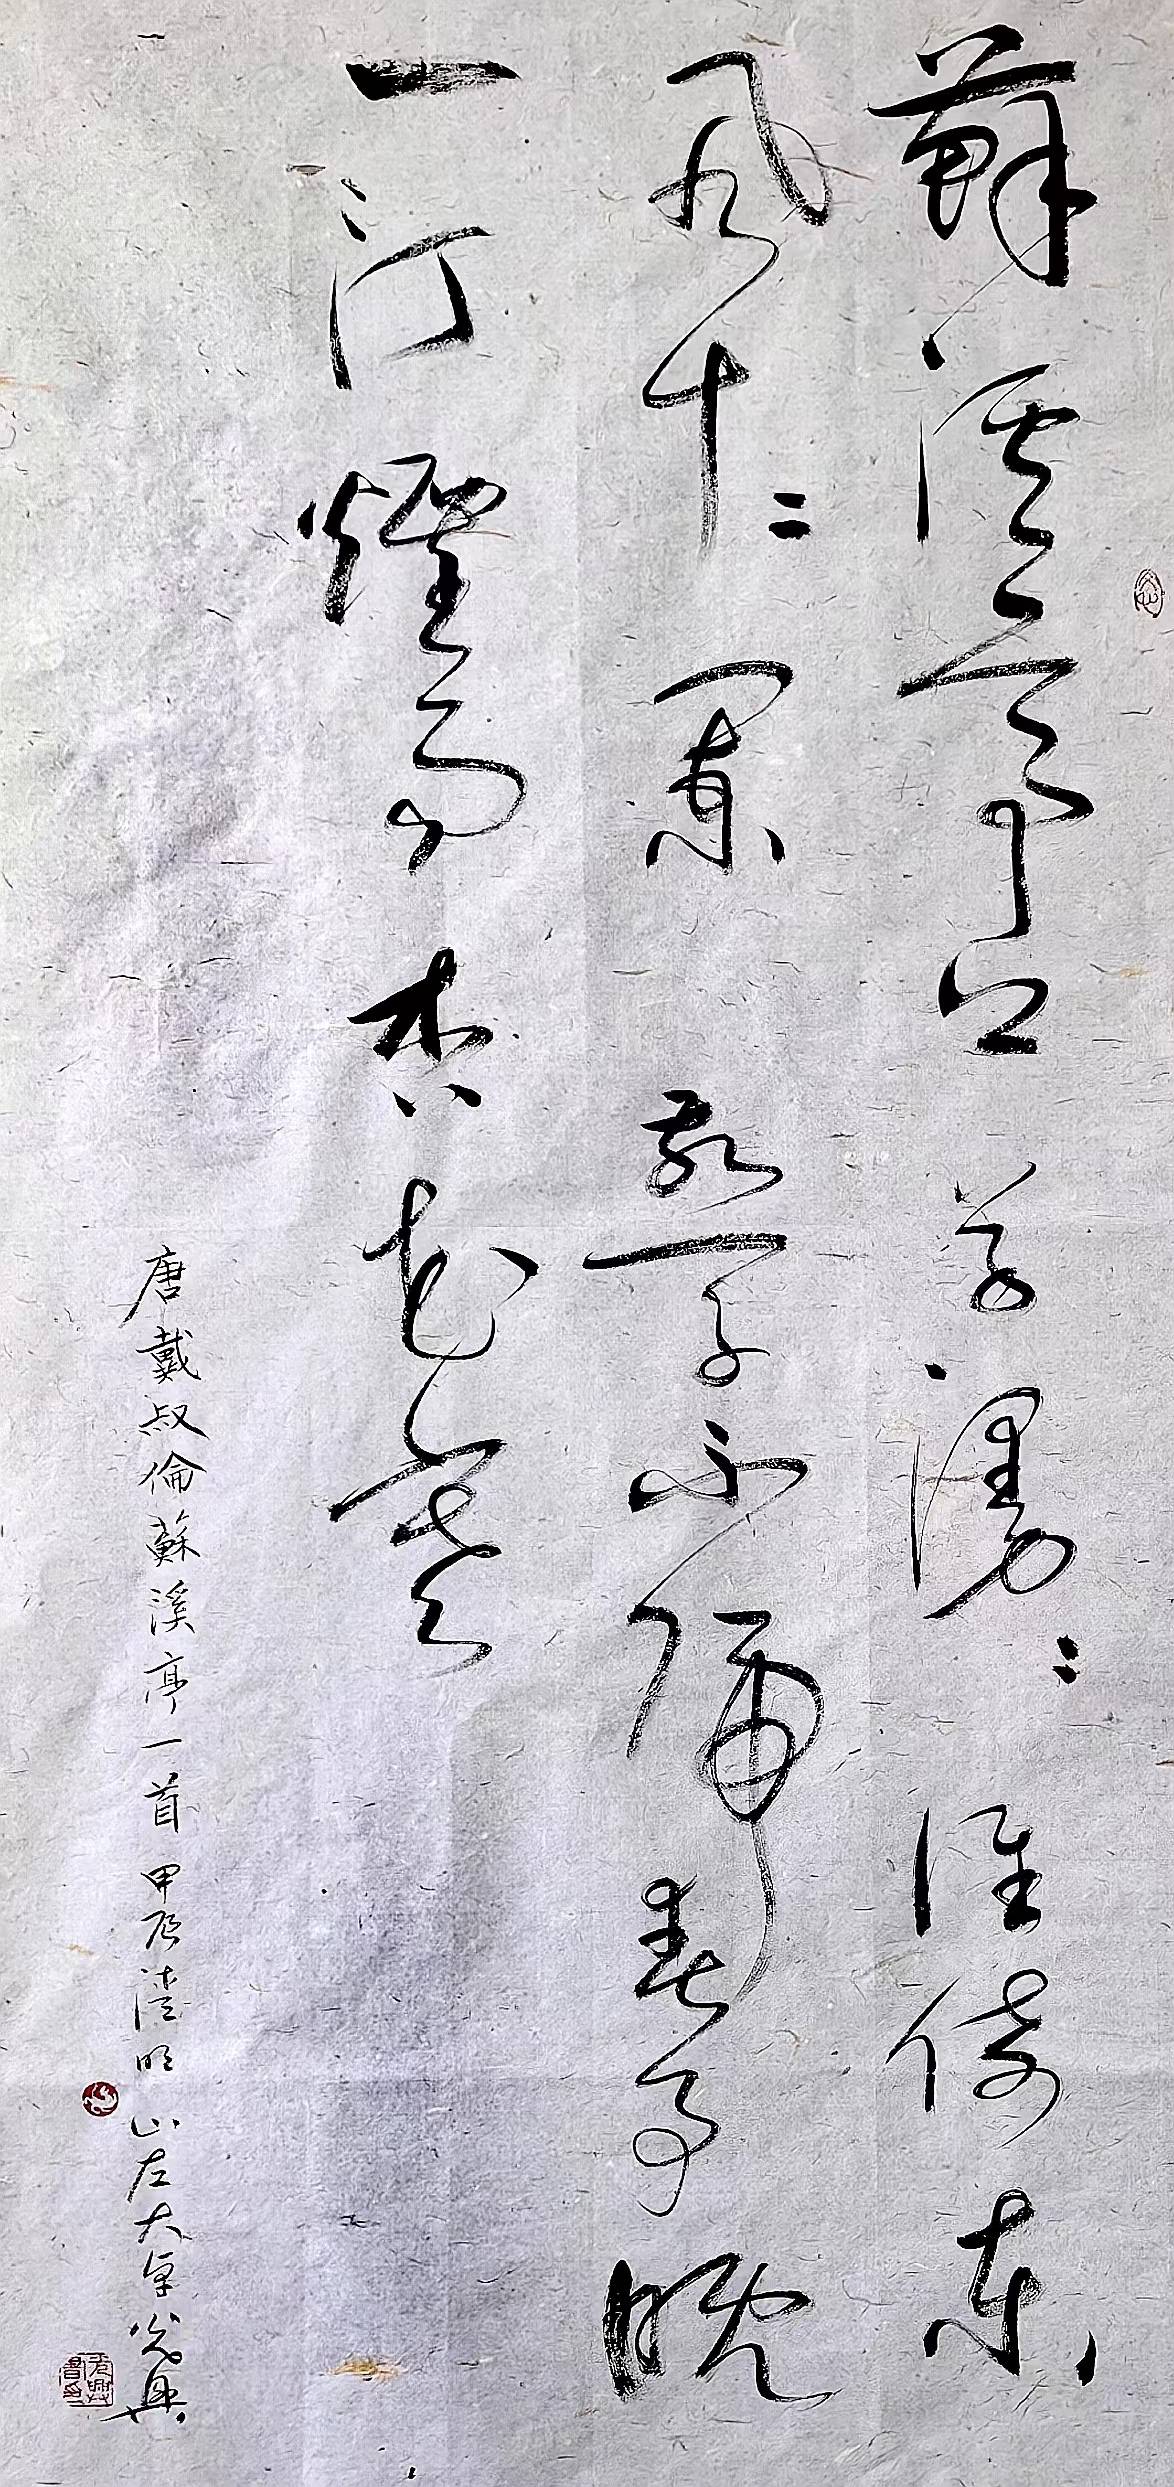 蘇溪亭上草漫〻誰倚東
風十二闌燕子不歸春事晚
一汀煙雨杏花寒
唐戴叔倫蘇溪亭一首甲辰清明山左大卓光興